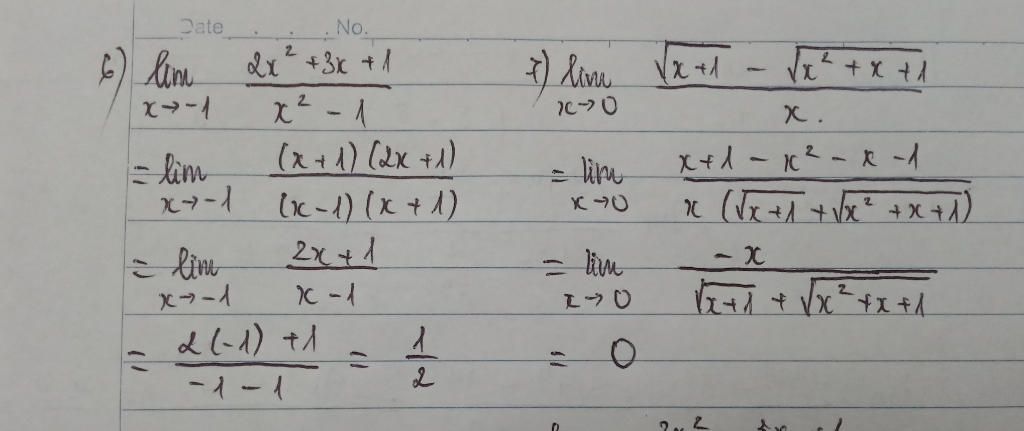 Date . . . No.
6) lim x→-1 (2x² + 3x + 1)/(x² - 1)
= lim x→-1 ((x+1)(2x+1))/((x-1)(x+1))
= lim x→-1 (2x+1)/(x-1)
= (2(-1) + 1)/(-1 - 1) = 1/2
7) lim x→0 (√(x+1) - √(x² + x + 1))/x.
= lim x→0 (x+1 - x² - x - 1)/(x (√(x+1) + √(x² + x + 1)))
= lim x→0 (-x)/(√(x+1) + √(x² + x + 1))
= 0